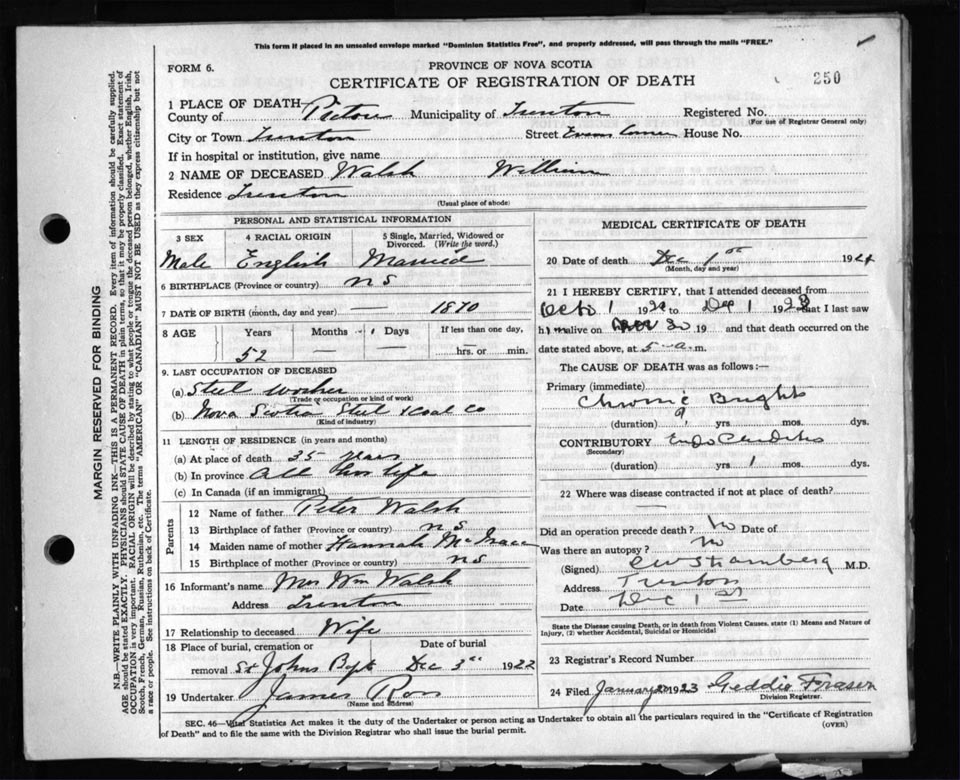 This form if placed in an unsealed envelope marked "Dominion Statistics Free", and properly addressed, will pass through the mails "FREE."
FORM 6.
PROVINCE OF NOVA SCOTIA
CERTIFICATE OF REGISTRATION OF DEATH
250
1 PLACE OF DEATH
County of Pictou Municipality of Trenton Registered No.
(For use of Registrar General only)
City or Town Trenton Street House No.
If in hospital or institution, give name
2 NAME OF DECEASED Walsh William
Residence Trenton
(Usual place of abode)
PERSONAL AND STATISTICAL INFORMATION
3 SEX 4 RACIAL ORIGIN 5 Single, Married, Widowed or Divorced. (Write the word.)
Male English Married
6 BIRTHPLACE (Province or country) N S
7 DATE OF BIRTH (month, day and year) 1870
8 AGE Years Months Days If less than one day,
52 — — hrs. or min.
9. LAST OCCUPATION OF DECEASED
(a) Steel worker
(Trade or occupation or kind of work)
(b) Nova Scotia Steel & Coal Co
(Kind of industry)
11 LENGTH OF RESIDENCE (in years and months)
(a) At place of death 35 years
(b) In province All his life
(c) In Canada (if an immigrant)
Parents
12 Name of father Peter Walsh
13 Birthplace of father (Province or country) N S
14 Maiden name of mother Hannah McGrace
15 Birthplace of mother (Province or country) N S
16 Informant's name Mrs Wm Walsh
Address Trenton
17 Relationship to deceased Wife
18 Place of burial, cremation or Date of burial
removal St Johns Dec 3rd 1922
19 Undertaker James Ross
(Name and address)
MEDICAL CERTIFICATE OF DEATH
20 Date of death Dec 1st 192
(Month, day and year)
21 I HEREBY CERTIFY, that I attended deceased from
Octo 1 192 to Dec 1 192 that I last saw
h im alive on 30 19 and that death occurred on the
date stated above, at 5 a.m.
The CAUSE OF DEATH was as follows:—
Primary (immediate)
Chronic Brights
(duration) yrs mos. dys.
CONTRIBUTORY Endo Carditis
(Secondary)
(duration) yrs 1 mos. dys.
22 Where was disease contracted if not at place of death?
—
Did an operation precede death? No Date of
Was there an autopsy? No
(Signed) M.D.
Address Trenton
Date Dec 1st
State the Disease causing Death, or in death from Violent Causes, state (1) Means and Nature of Injury, (2) whether Accidental, Suicidal or Homicidal
23 Registrar's Record Number
24 Filed January 1923 Geddie Fraser
Division Registrar.
SEC. 46—Vital Statistics Act makes it the duty of the Undertaker or person acting as Undertaker to obtain all the particulars required in the "Certificate of Registration
of Death" and to file the same with the Division Registrar who shall issue the burial permit.
(OVER)
MARGIN RESERVED FOR BINDING
N.B.—WRITE PLAINLY WITH UNFADING INK—THIS IS A PERMANENT RECORD. Every item of information should be carefully supplied.
AGE should be stated EXACTLY. PHYSICIANS should STATE CAUSE OF DEATH in plain terms, so that it may be properly classified. Exact statement of
OCCUPATION is very important. RACIAL ORIGIN will be described by stating to what people or tongue the deceased person belonged, whether English, Irish,
Scotch, French, German, Russian, Ruthenian, etc. The terms "AMERICAN" or "CANADIAN" MUST NOT BE USED as they express citizenship but not
a race or people. See instructions on back of Certificate.